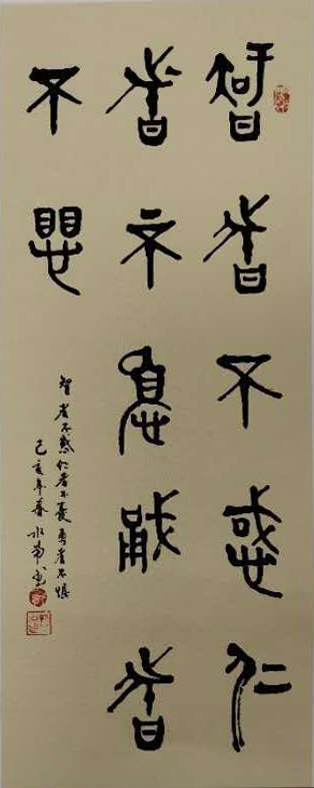 智者不惑仁
者不憂勇者
不懼
智者不惑仁者不憂勇者不惧
己亥年春